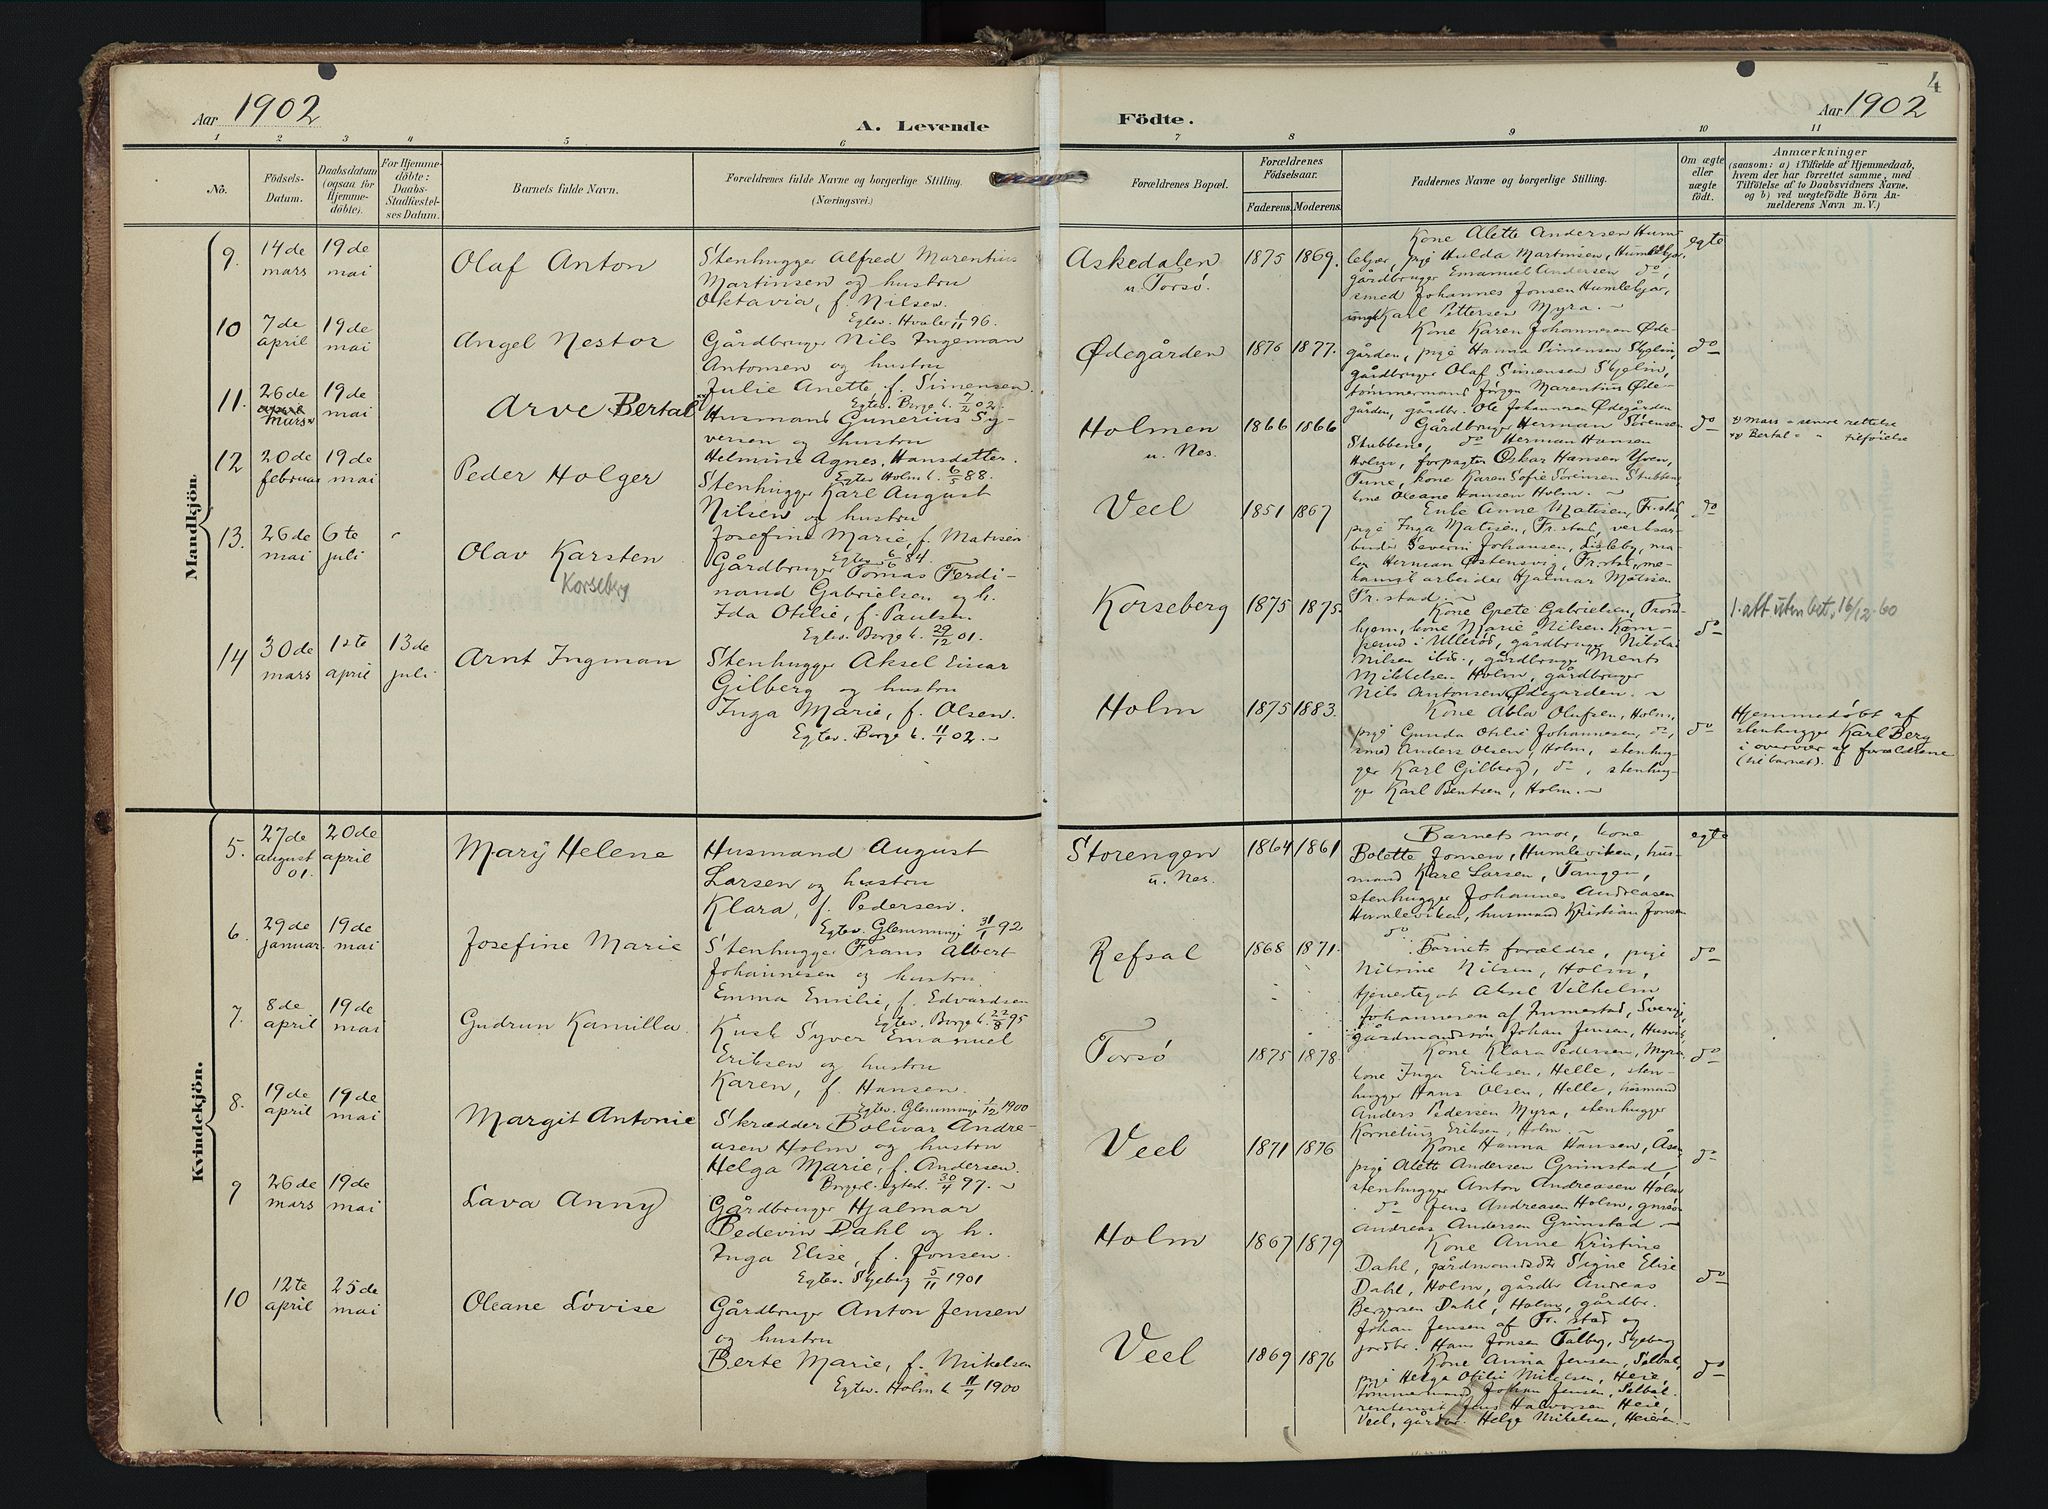 Aar 1902
A. Levende
Födte.
Aar 1902
4
1 2 3 4 5 6 7 8 9 10 11
No.
Födsels-Datum.
Daabsdatum (ogsaa for Hjemme-döbte).
For Hjemme-döbte: Daabs-Stadfæstel-ses Datum.
Barnets fulde Navn.
Forældrenes fulde Navne og borgerlige Stilling.
(Næringsvei.)
Forældrenes Bopæl.
Forældrenes Födselsaar.
Faderens. Moderens.
Faddernes Navne og borgerlige Stilling.
Om ægte eller uægte födt.
Anmærkninger
(saasom: a) i Tilfælde af Hjemmedaab,
hvem der har forrettet samme, med
Tilföielse af to Daabsvidners Navne,
og b) ved uægtefödte Börn An-
melderens Navn m. V.)
Mandkjön.
9. 14de mars 19de mai Olaf Anton
Stenhugger Alfred Marentius
Martinsen og hustru
Oktavia, f. Nilsen.
Egtev. Hvaler 1/11 96.
Askedalen
u. Torsø.
1875 1869.
Kone Alette Andersen Hum-
lekjær, pige Hulda Martinsen, Humlekjær,
gårdbruger Emanuel Andersen do,
smed Johannes Jonsen Humlekjær,
ungk Karl Pettersen Myra. ~
egte
10 7de april 19de mai Angel Nestor
Gårdbruger Nils Ingeman
Antonsen og hustru
Julie Anette f. Simensen.
Egtev. Borge k. 7/2 02.
Ødegården
1876 1877.
Kone Karen Johannesen Øde-
gården, pige Hanna Simensen Skjelin,
gårdbruger Olaf Simensen Skjelin,
tømmermand Jørgen Marentius Øde-
gården, gårdbr. Ole Johannesen Ødegården
do
11. 26de april mars x) 19de mai Arve Bertal xx)
Husmand Gunerius Sy-
versen og hustru
Helmine Agnes Hansdatter.
Egtev Holm k. 6/5 88.
Holmen
u. Nes.
1866 1866
Gårdbruger Herman Sørensen
Stubbene, do Herman Hansen
Holm, forpagter Oskar Hansen Yven,
Tune, kone Karen Sofie Sørensen Stubbene
kone Oleane Hansen Holm. ~
do
x) mars = senere rettelse
xx) Bertal = " tilføielse
12 20de februar 19de mai Peder Holger
Stenhugger Karl August
Nilsen og hustru
Josefine Marie, f. Matisen
Egtev. 6/6 84.
Veel
1851 1867
Enke Anne Matisen, Fr.stad,
pige Inga Matisen, Fr.stad, verksar-
beider Severin Johansen, Lisleby, ma-
ler Herman Østensvig, Fr.stad, me-
kanisk arbeider Hjalmar Matisen
Fr.stad. ~
do
13. 26de mai 6te juli Olav Karsten
Korseberg
Gårdbruger Tomas Ferdi-
nand Gabrielsen og h.
Ida Otilie, f. Paulsen.
Egtev. Borge k. 29/12 01.
Korseberg
1875 1875.
Kone Grete Gabrielsen, Trond-
hjem, kone Marie Nilsen
i Ullerød, gårdbruger Nikolai
Nilsen ibid., gårdbruger Ments
Mikkelsen Holm, gårdbruger
Nils Antonsen Ødegården. ~
do
1. att uten bet. 16/12.60
14 30de mars 1ste april 13de juli Arnt Ingman
Stenhugger Aksel Einar
Gilberg og hustru
Inga Marie, f. Olsen.
Egtev. Borge k. 11/1 02. ~
Holm
1875 1883.
Kone Abla Olufsen, Holm,
pige Gunda Otilie Johannesen, do,
smed Anders Olsen, Holm, stenhug-
ger Karl Gilberg, do, stenhug-
ger Karl Bentsen, Holm. ~
do
Hjemmedøbt af
stenhugger Karl Berg
i overvær af forældrene
(til barnet).
Kvindekjön.
5. 27de august 01. 20de april Mary Helene
Husmand August
Larsen og hustru
Klara, f. Pedersen.
Egtev. Glemminge 31/1 92
Storengen
u. Nes.
1864 1861
Barnets mor, kone
Bolette Jonsen, Humleviken, hus-
mand Karl Larsen, Tangen,
stenhugger Johannes Andreasen
Humleviken, husmand Kristian Jonsen
do
egte
6. 29de januar 19de mai Josefine Marie
Stenhugger Frans Albert
Johannesen og hustru
Emma Emilie, f. Edvardsen
Egtev. Borge k. 22/8 95
Refsal
1868 1871.
Barnets forældre, pige
Nilsine Nilsen, Holm,
tjenestegut Aksel Vilhelm
Johannesen af Immestad, Sverige,
gårdmandssøn Johan Jensen, Husvik
do
7. 8de april 19de mai Gudrun Kamilla.
Kusk Syver Emanuel
Eriksen og hustru
Karen, f. Hansen.
Egtev. Glemminge 1/12 1900
Torsø
1875 1878.
Kone Klara Pedersen, Myra,
kone Inga Eriksen, Helle, sten-
hugger Hans Olsen, Helle, husmand
Anders Pedersen Myra, stenhugger
Kornelius Eriksen, Holm. ~
do
8. 19de april 19de mai Margit Antonie
Skrædder Bolivar Andre-
asen Holm og hustru
Helga Marie, f. Andersen.
Borgerl. egted. 30/4 97. ~
Veel
1871 1876
Kone Hanna Hansen, Åsen
pige Alette Andersen Grimstad,
stenhugger Anton Andreasen Holm
do Jens Andreasen Holm,
Andreas Andersen Grimstad ~
do
9 26de mars 19de mai Lava Anny
Gårdbruger Hjalmar
Bedevin Dahl og h.
Inga Elise, f. Jonsen.
Egtev. Skjeberg 5/11 1901
Holm
1867 1879
Kone Anne Kristine
Dahl, gårdmandsdtr Signe Elise
Dahl, Holm, gårdbr Andreas
Bergersen Dahl, Holm, gårdbr.
Johan Jensen af Fr. stad og
jordbr. Hans Jonsen Talberg, Skjeberg
do
10 12te april 25de mai Oleane Lovise
Gårdbruger Anton Jensen
og hustru
Berte Marie, f. Mikelsen
Egtev. Holm k 11/7 1900
Veel
1869 1876
Kone Anna Jensen,
pige Helga Otilie Mikelsen, Heie,
tømmermand Johan Jensen,
Jens Halvorsen Heie,
Veel, gårdbr. Helge Mikelsen, Heieren. ~
do